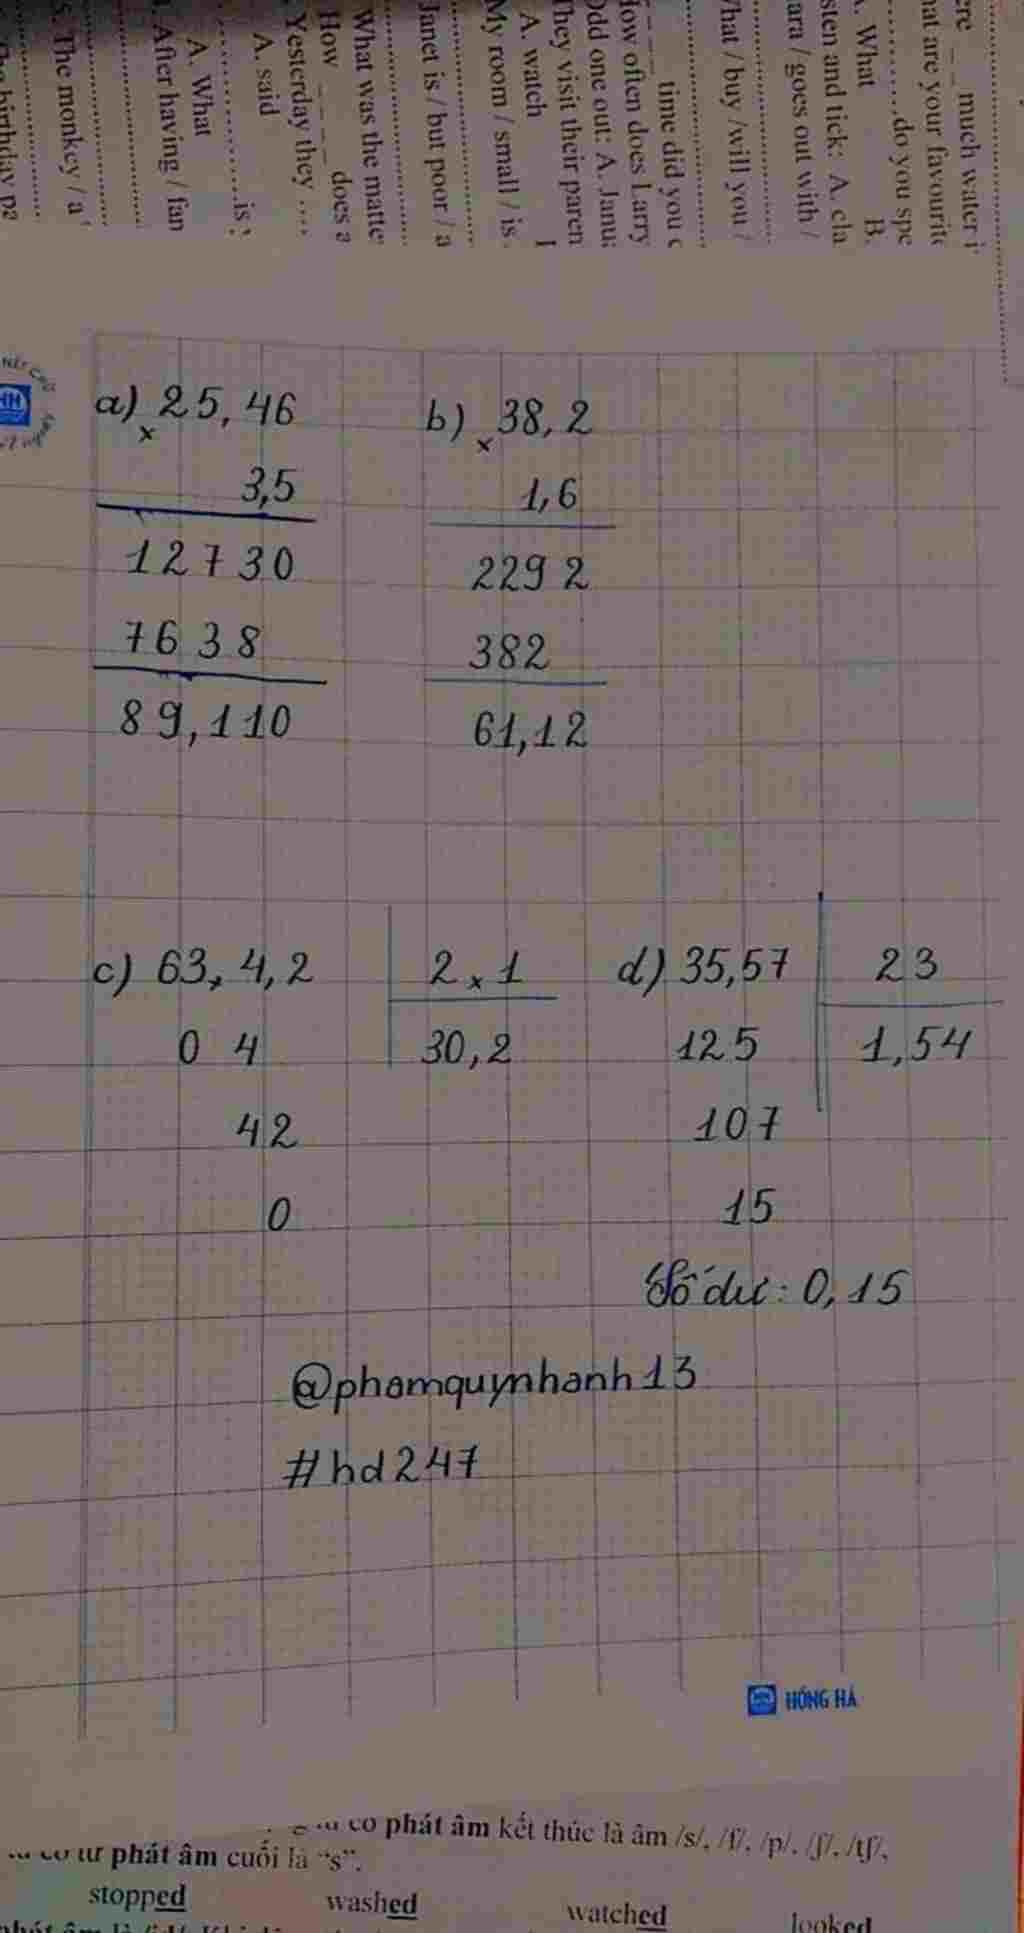 a) 25,46
x
3,5
12730
7638
89,110
b) 38,2
x
1,6
2292
382
61,12
c) 63,4,2 2x1
0 4 30,2
42
0
d) 35,57 23
125 1,54
107
15
Số dư: 0,15
@phamquynhanh13
#hd247
HỒNG HÀ
much water i
hat are your favourite
do you spe
What B.
sten and tick: A. cla
ara / goes out with /
hat / buy /will you /
time did you
How often does Larry
Odd one out: A. Janu
They visit their paren
A. watch
My room / small / is
Janet is / but poor / a
What was the matte
How ____ does
Yesterday they ....
A. said
is
A. What
After having / fan
The monkey / a
birthday
có phát âm kết thúc là âm /s/, /f/, /p/, /ʃ/, /tʃ/,
từ phát âm cuối là "s".
stopped washed watched looked